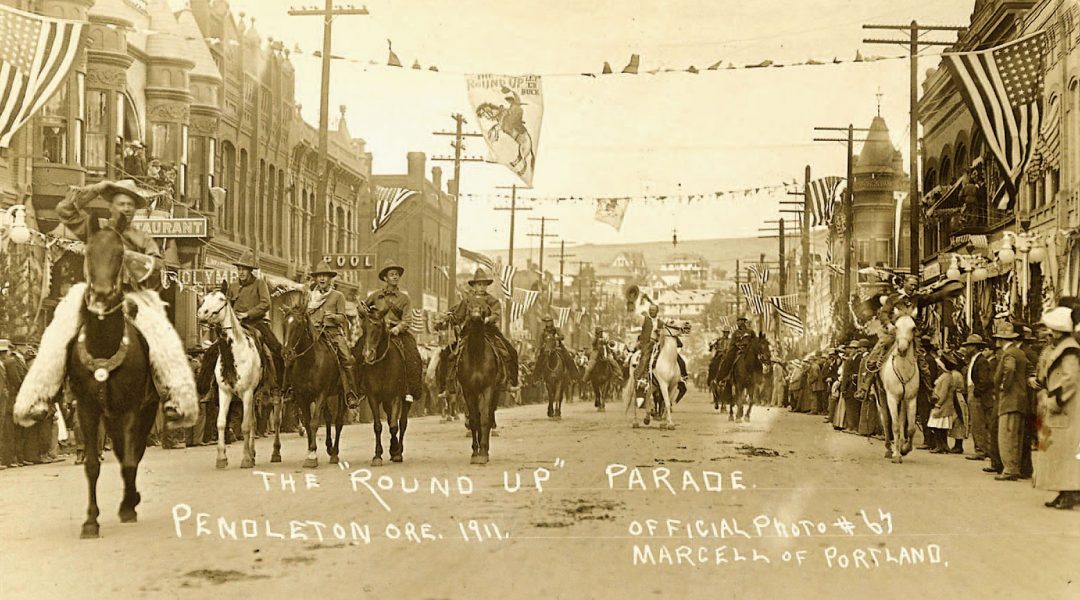 THE ROUND UP LET 'ER BUCK
RESTAURANT
OLYMP
POOL
THE "ROUND UP" PARADE.
PENDLETON ORE. 1911.
OFFICIAL PHOTO # 67
MARCELL OF PORTLAND.